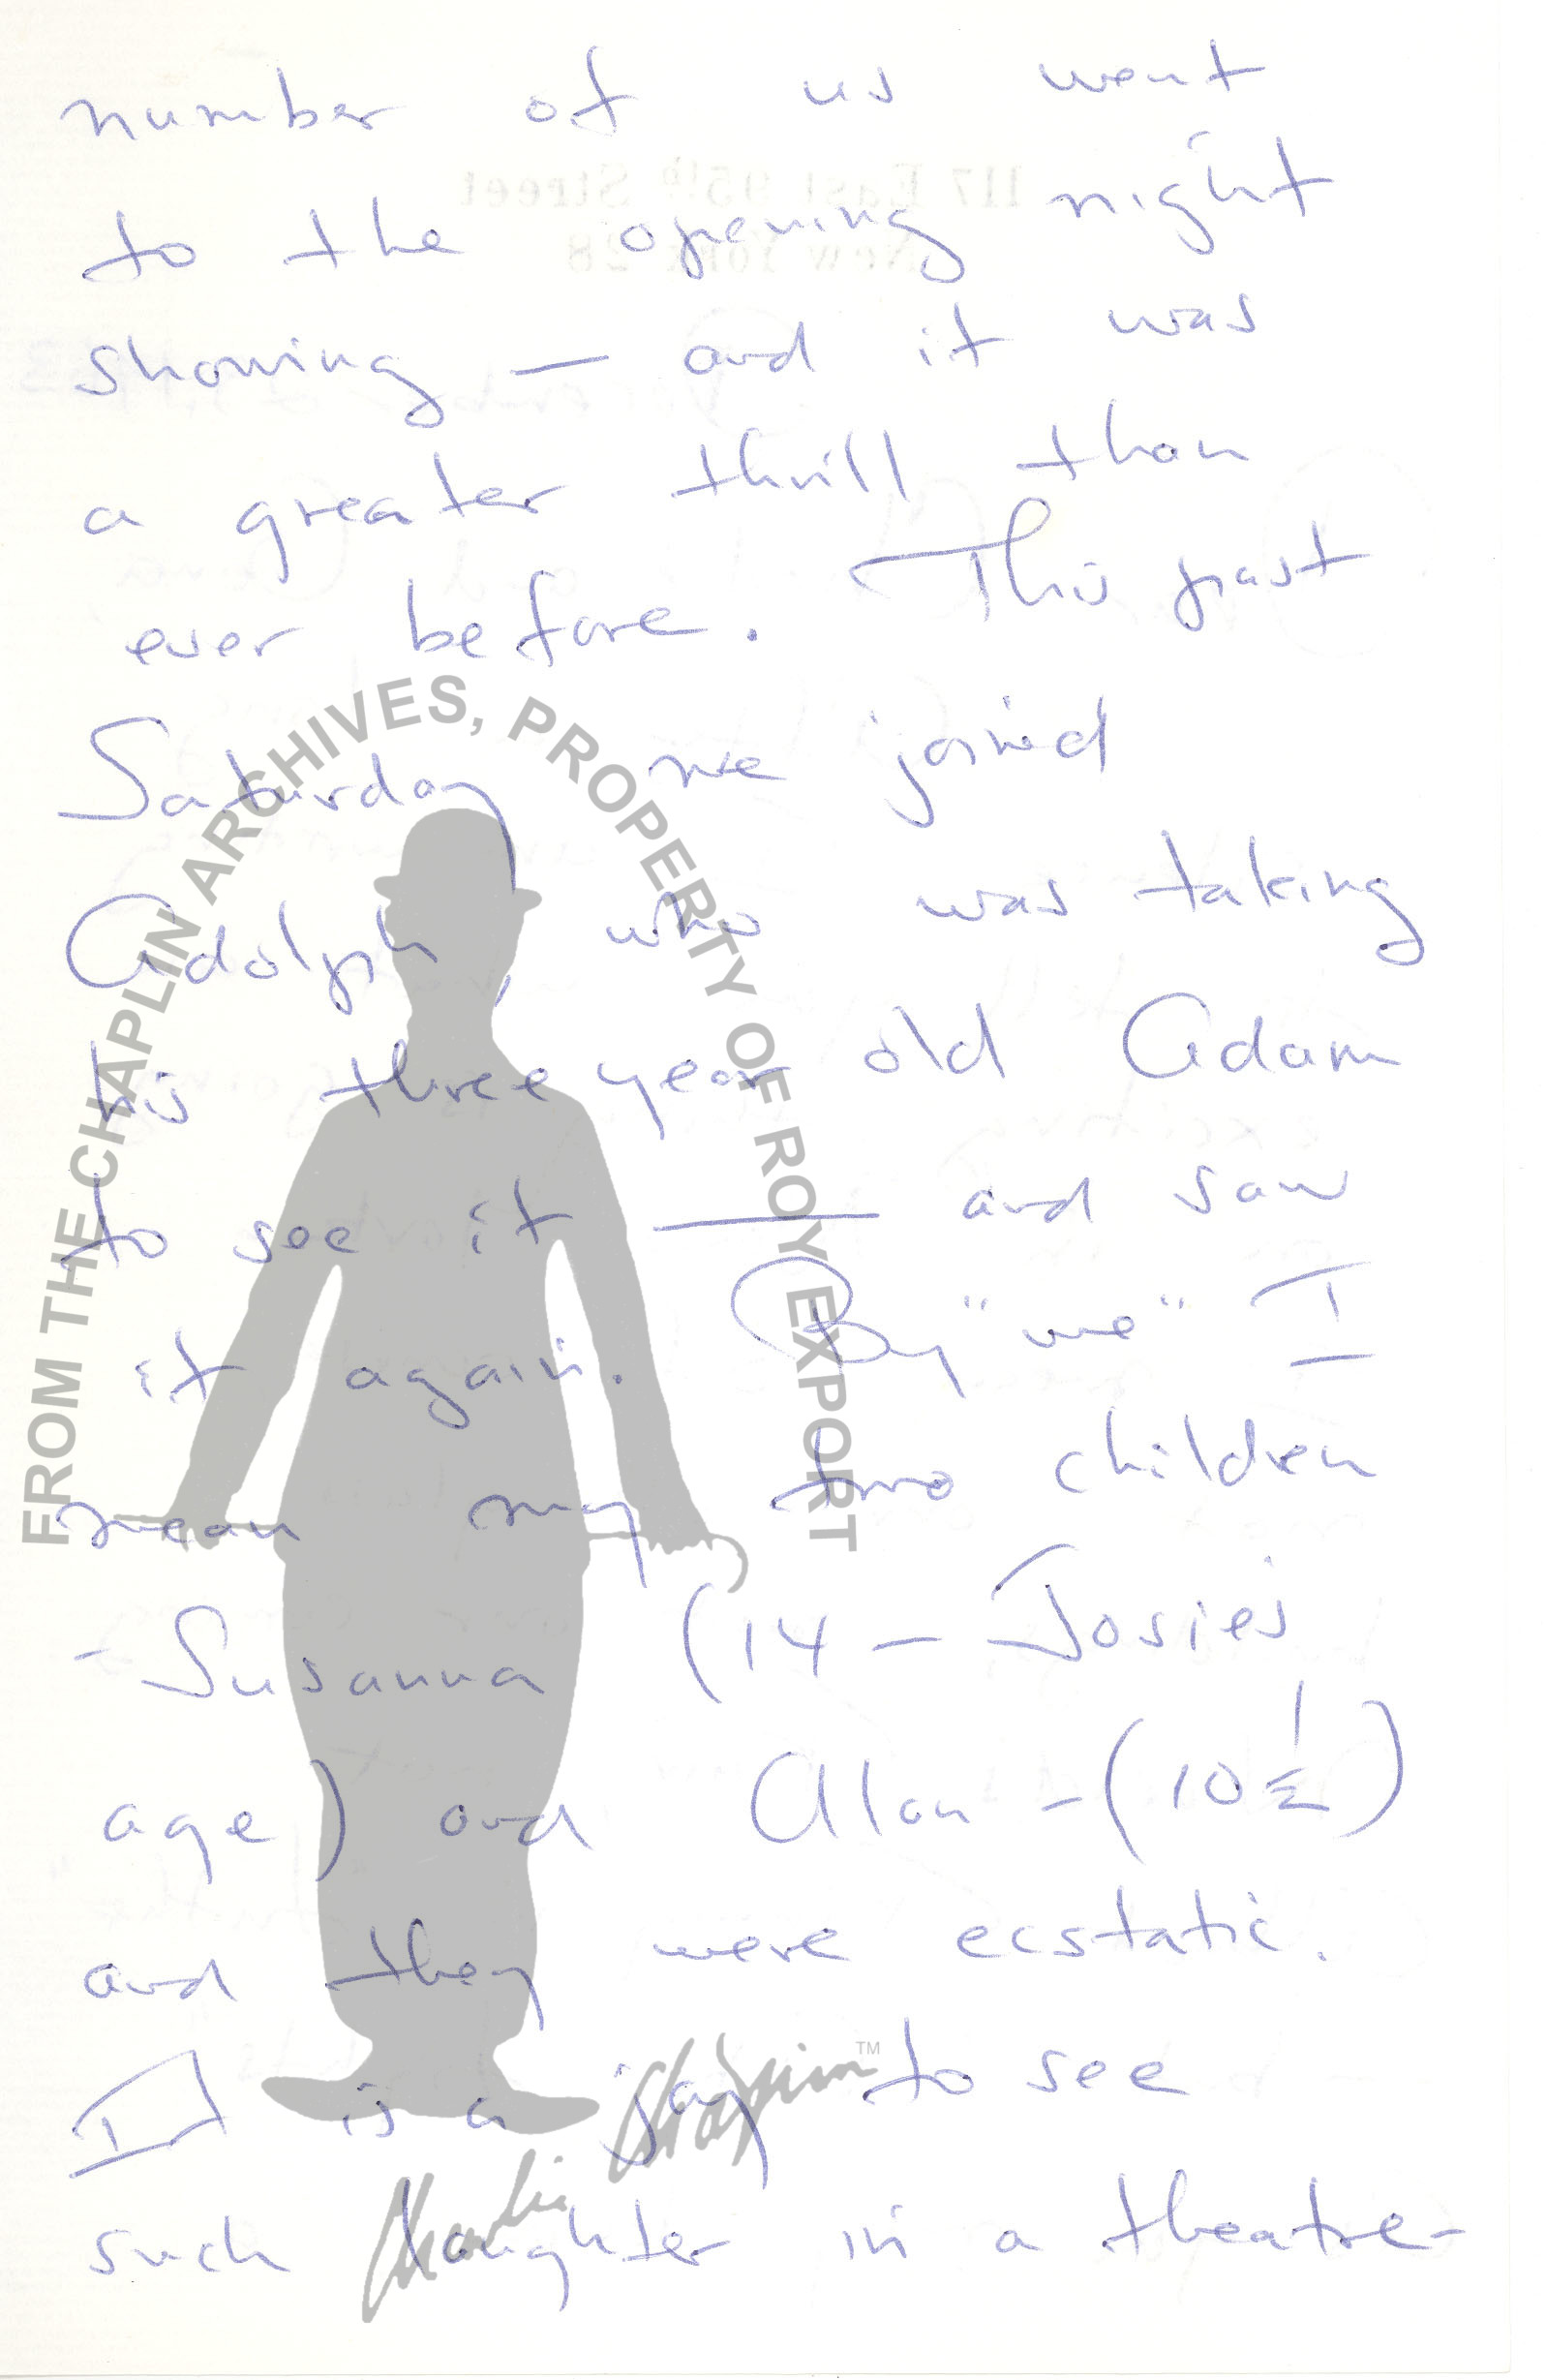 number of us went
to the opening night
showing — and it was
a greater thrill than
ever before. This past
Saturday we joined
Adolph, who was taking
his three year old Adam
to see it — and saw
it again. By "we" I
mean my two children
- Susanna (14 - Josies
age) and Alan - (10 1/2)
and they were ecstatic.
It is a joy to see
such laughter in a theatre-
FROM THE CHAPLIN ARCHIVES, PROPERTY OF ROY EXPORT
Charlie Chaplin™
117 East 95th Street
New York 28